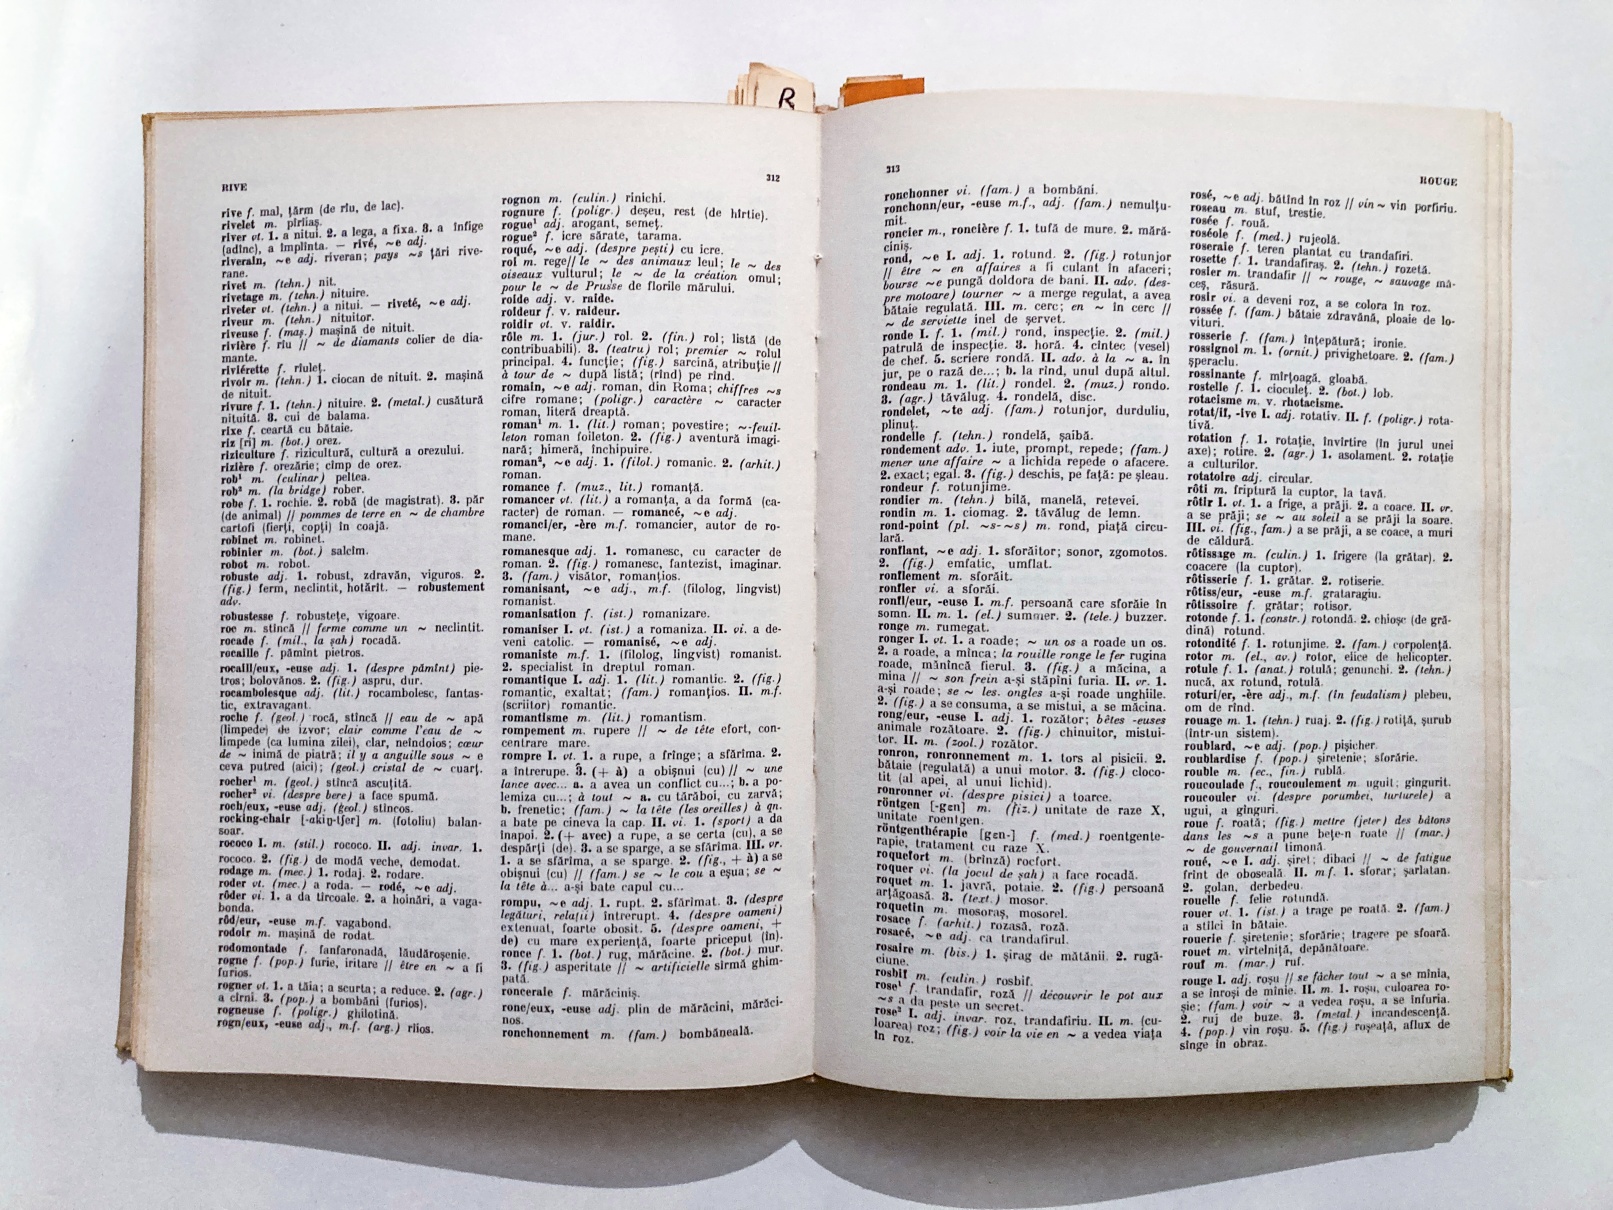 R
RIVE 312
rive f. mal, țărm (de rîu, de lac).
rivelet m. pîrîiaș.
river vt. 1. a nitui. 2. a lega, a fixa. 3. a înfige
(adînc), a împlînta. — rivé, ~e adj.
riverain, ~e adj. riveran; pays ~s țări rive-
rane.
rivet m. (tehn.) nit.
rivetage m. (tehn.) nituire.
riveter vt. (tehn.) a nitui. — riveté, ~e adj.
riveur m. (tehn.) nituitor.
riveuse f. (maș.) mașină de nituit.
rivière f. rîu // ~ de diamants colier de dia-
mante.
riviérette f. rîuleț.
rivoir m. (tehn.) 1. ciocan de nituit. 2. mașină
de nituit.
rivure f. 1. (tehn.) nituire. 2. (metal.) cusătură
nituită. 3. cui de balama.
rixe f. ceartă cu bătaie.
riz [ri] m. (bot.) orez.
riziculture f. rizicultură, cultură a orezului.
rizière f. orezărie; cîmp de orez.
rob¹ m. (culinar) peltea.
rob² m. (la bridge) rober.
robe f. 1. rochie. 2. robă (de magistrat). 3. păr
(de animal) // pommes de terre en ~ de chambre
cartofi (fierți, copți) în coajă.
robinet m. robinet.
robinier m. (bot.) salcîm.
robot m. robot.
robuste adj. 1. robust, zdravăn, viguros. 2.
(fig.) ferm, neclintit, hotărît. — robustement
adv.
robustesse f. robustețe, vigoare.
roc m. stîncă // ferme comme un ~ neclintit.
rocade f. (mil., la șah) rocadă.
rocaille f. pămînt pietros.
rocaill/eux, -euse adj. 1. (despre pămînt) pie-
tros; bolovănos. 2. (fig.) aspru, dur.
rocambolesque adj. (lit.) rocambolesc, fantas-
tic, extravagant.
roche f. (geol.) rocă, stîncă // eau de ~ apă
(limpede) de izvor; clair comme l'eau de ~
limpede (ca lumina zilei), clar, neîndoios; cœur
de ~ inimă de piatră; il y a anguille sous ~ e
ceva putred (aici); (geol.) cristal de ~ cuarț.
rocher¹ m. (geol.) stîncă ascuțită.
rocher² vi. (despre bere) a face spumă.
roch/eux, -euse adj. (geol.) stîncos.
rocking-chair [-akiŋ-tʃer] m. (fotoliu) balan-
soar.
rococo I. m. (stil.) rococo. II. adj. invar. 1.
rococo. 2. (fig.) de modă veche, demodat.
rodage m. (mec.) 1. rodaj. 2. rodare.
roder vt. (mec.) a roda. — rodé, ~e adj.
rôder vi. 1. a da tîrcoale. 2. a hoinări, a vaga-
bonda.
rôd/eur, -euse m.f. vagabond.
rodoir m. mașină de rodat.
rodomontade f. fanfaronadă, lăudăroșenie.
rogne f. (pop.) furie, iritare // être en ~ a fi
furios.
rogner vt. 1. a tăia; a scurta; a reduce. 2. (agr.)
a cîrni. 3. (pop.) a bombăni (furios).
rogneuse f. (poligr.) ghilotină.
rogn/eux, -euse adj., m.f. (arg.) rîios.
rognon m. (culin.) rinichi.
rognure f. (poligr.) deșeu, rest (de hîrtie).
rogue¹ adj. arogant, semeț.
rogue² f. icre sărate, tarama.
rogué, ~e adj. (despre pești) cu icre.
roi m. rege// le ~ des animaux leul; le ~ des
oiseaux vulturul; le ~ de la création omul;
pour le ~ de Prusse de florile mărului.
roide adj. v. raide.
roideur f. v. raideur.
roidir vt. v. raidir.
rôle m. 1. (jur.) rol. 2. (fin.) rol; listă (de
contribuabili). 3. (teatru) rol; premier ~ rolul
principal. 4. funcție; (fig.) sarcină, atribuție //
à tour de ~ după listă; (rînd) pe rînd.
romain, ~e adj. roman, din Roma; chiffres ~s
cifre romane; (poligr.) caractère ~ caracter
roman, literă dreaptă.
roman¹ m. 1. (lit.) roman; povestire; ~-feuil-
leton roman foileton. 2. (fig.) aventură imagi-
nară; himeră, închipuire.
roman², ~e adj. 1. (filol.) romanic. 2. (arhit.)
roman.
romance f. (muz., lit.) romanță.
romancer vt. (lit.) a romanța, a da formă (ca-
racter) de roman. — romancé, ~e adj.
romanci/er, -ère m.f. romancier, autor de ro-
mane.
romanesque adj. 1. romanesc, cu caracter de
roman. 2. (fig.) romanesc, fantezist, imaginar.
3. (fam.) visător, romanțios.
romanisant, ~e adj., m.f. (filolog, lingvist)
romanist.
romanisation f. (ist.) romanizare.
romaniser I. vt. (ist.) a romaniza. II. vi. a de-
veni catolic. — romanisé, ~e adj.
romaniste m.f. 1. (filolog, lingvist) romanist.
2. specialist în dreptul roman.
romantique I. adj. 1. (lit.) romantic. 2. (fig.)
romantic, exaltat; (fam.) romanțios. II. m.f.
(scriitor) romantic.
romantisme m. (lit.) romantism.
rompement m. rupere // ~ de tête efort, con-
centrare mare.
rompre I. vt. 1. a rupe, a frînge; a sfărîma. 2.
a întrerupe. 3. (+ à) a obișnui (cu) // ~ une
lance avec... a. a avea un conflict cu...; b. a po-
lemiza cu...; à tout ~ a. cu tărăboi, cu zarvă;
b. frenetic; (fam.) ~ la tête (les oreilles) à qn.
a bate pe cineva la cap. II. vi. 1. (sport) a da
înapoi. 2. (+ avec) a rupe, a se certa (cu), a se
despărți (de). 3. a se sparge, a se sfărîma. III. vr.
1. a se sfărîma, a se sparge. 2. (fig., + à) a se
obișnui (cu) // (fam.) se ~ le cou a eșua; se ~
la tête à... a-și bate capul cu...
rompu, ~e adj. 1. rupt. 2. sfărîmat. 3. (despre
legături, relații) întrerupt. 4. (despre oameni)
extenuat, foarte obosit. 5. (despre oameni, +
de) cu mare experiență, foarte priceput (în).
ronce f. 1. (bot.) rug, mărăcine. 2. (bot.) mur.
3. (fig.) asperitate // ~ artificielle sîrmă ghim-
pată.
ronceraie f. mărăciniș.
ronc/eux, -euse adj. plin de mărăcini, mărăci-
nos.
ronchonnement m. (fam.) bombăneală.
313 ROUGE
ronchonner vi. (fam.) a bombăni.
ronchonn/eur, -euse m.f., adj. (fam.) nemulțu-
mit.
roncier m., roncière f. 1. tufă de mure. 2. mără-
ciniș.
rond, ~e I. adj. 1. rotund. 2. (fig.) rotunjor
// être ~ en affaires a fi culant în afaceri;
bourse ~e pungă doldora de bani. II. adv. (des-
pre motoare) tourner ~ a merge regulat, a avea
bătaie regulată. III. m. cerc; en ~ în cerc //
~ de serviette inel de șervet.
ronde I. f. 1. (mil.) rond, inspecție. 2. (mil.)
patrulă de inspecție. 3. horă. 4. cîntec (vesel)
de chef. 5. scriere rondă. II. adv. à la ~ a. în
jur, pe o rază de...; b. la rînd, unul după altul.
rondeau m. 1. (lit.) rondel. 2. (muz.) rondo.
3. (agr.) tăvălug. 4. rondelă, disc.
rondelet, ~te adj. (fam.) rotunjor, durduliu,
plinuț.
rondelle f. (tehn.) rondelă, șaibă.
rondement adv. 1. iute, prompt, repede; (fam.)
mener une affaire ~ a lichida repede o afacere.
2. exact; egal. 3. (fig.) deschis, pe față: pe șleau.
rondeur f. rotunjime.
rondier m. (tehn.) bilă, manelă, retevei.
rondin m. 1. ciomag. 2. tăvălug de lemn.
rond-point (pl. ~s-~s) m. rond, piață circu-
lară.
ronflant, ~e adj. 1. sforăitor; sonor, zgomotos.
2. (fig.) emfatic, umflat.
ronflement m. sforăit.
ronfler vi. a sforăi.
ronfl/eur, -euse I. m.f. persoană care sforăie în
somn. II. m. 1. (el.) summer. 2. (tele.) buzzer.
ronge m. rumegat.
ronger I. vt. 1. a roade; ~ un os a roade un os.
2. a roade, a mînca; la rouille ronge le fer rugina
roade, mănîncă fierul. 3. (fig.) a măcina, a
mina // ~ son frein a-și stăpîni furia. II. vr. 1.
a-și roade; se ~ les ongles a-și roade unghiile.
2. (fig.) a se consuma, a se mistui, a se măcina.
rong/eur, -euse I. adj. 1. rozător; bêtes -euses
animale rozătoare. 2. (fig.) chinuitor, mistui-
tor. II. m. (zool.) rozător.
ronron, ronronnement m. 1. tors al pisicii. 2.
bătaie (regulată) a unui motor. 3. (fig.) cloco-
tit (al apei, al unui lichid).
ronronner vi. (despre pisici) a toarce.
röntgen [-gen] m. (fiz.) unitate de raze X,
unitate roentgen.
röntgenthérapie [gen-] f. (med.) roentgente-
rapie, tratament cu raze X.
roquefort m. (brînză) rocfort.
roquer vi. (la jocul de șah) a face rocadă.
roquet m. 1. javră, potaie. 2. (fig.) persoană
arțăgoasă. 3. (text.) mosor.
roquetin m. mosoraș, mosorel.
rosace f. (arhit.) rozasă, roză.
rosacé, ~e adj. ca trandafirul.
rosaire m. (bis.) 1. șirag de mătănii. 2. rugă-
ciune.
rosbif m. (culin.) rosbif.
rose¹ f. trandafir, roză // découvrir le pot aux
~s a da peste un secret.
rose² I. adj. invar. roz, trandafiriu. II. m. (cu-
loarea) roz; (fig.) voir la vie en ~ a vedea viața
în roz.
rosé, ~e adj. bătînd în roz // vin ~ vin porfiriu.
roseau m. stuf, trestie.
rosée f. rouă.
roséole f. (med.) rujeolă.
roseraie f. teren plantat cu trandafiri.
rosette f. 1. trandafiraș. 2. (tehn.) rozetă.
rosier m. trandafir // ~ rouge, ~ sauvage mă-
ceș, răsură.
rosir vi. a deveni roz, a se colora în roz.
rossée f. (fam.) bătaie zdravănă, ploaie de lo-
vituri.
rosserie f. (fam.) înțepătură; ironie.
rossignol m. 1. (ornit.) privighetoare. 2. (fam.)
șperaclu.
rossinante f. mîrțoagă, gloabă.
rostelle f. 1. cioculeț. 2. (bot.) lob.
rotacisme m. v. rhotacisme.
rotat/if, -ive I. adj. rotativ. II. f. (poligr.) rota-
tivă.
rotation f. 1. rotație, învîrtire (în jurul unei
axe); rotire. 2. (agr.) 1. asolament. 2. rotație
a culturilor.
rotatoire adj. circular.
rôti m. friptură la cuptor, la tavă.
rôtir I. vt. 1. a frige, a prăji. 2. a coace. II. vr.
a se prăji; se ~ au soleil a se prăji la soare.
III. vi. (fig., fam.) a se prăji, a se coace, a muri
de căldură.
rôtissage m. (culin.) 1. frigere (la grătar). 2.
coacere (la cuptor).
rôtisserie f. 1. grătar. 2. rotiserie.
rôtiss/eur, -euse m.f. grataragiu.
rôtissoire f. grătar; rotisor.
rotonde f. 1. (constr.) rotondă. 2. chioșc (de gră-
dină) rotund.
rotondité f. 1. rotunjime. 2. (fam.) corpolență.
rotor m. (el., av.) rotor, elice de helicopter.
rotule f. 1. (anat.) rotulă; genunchi. 2. (tehn.)
nucă, ax rotund, rotulă.
roturi/er, -ère adj., m.f. (în feudalism) plebeu,
om de rînd.
rouage m. 1. (tehn.) ruaj. 2. (fig.) rotiță, șurub
(într-un sistem).
roublard, ~e adj. (pop.) pișicher.
roublardise f. (pop.) șiretenie; sforărie.
rouble m. (ec., fin.) rublă.
roucoulade f., roucoulement m. uguit; gîngurit.
roucouler vi. (despre porumbei, turturele) a
ugui, a gînguri.
roue f. roată; (fig.) mettre (jeter) des bâtons
dans les ~s a pune bețe-n roate // (mar.)
~ de gouvernail timonă.
roué, ~e I. adj. șiret; dibaci // ~ de fatigue
frînt de oboseală. II. m f. 1. sforar; șarlatan.
2. golan, derbedeu.
rouelle f. felie rotundă.
rouer vt. 1. (ist.) a trage pe roată. 2. (fam.)
a stîlci în bătaie.
rouerie f. șiretenie; sforărie; tragere pe sfoară.
rouet m. vîrtelniță, depănătoare.
rouf m. (mar.) ruf.
rouge I. adj. roșu // se fâcher tout ~ a se mînia,
a se înroși de mînie. II. m. 1. roșu, culoarea ro-
șie; (fam.) voir ~ a vedea roșu, a se înfuria.
2. ruj de buze. 3. (metal.) incandescență.
4. (pop.) vin roșu. 5. (fig.) roșeață, aflux de
sînge în obraz.